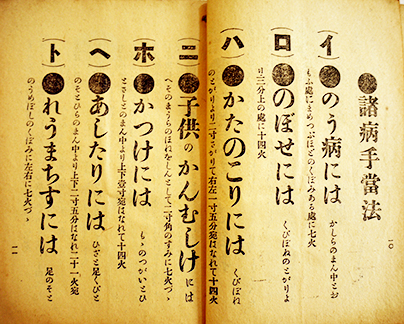 諸病手當法
一〇
(イ)●のう病には かしらのまん中とお
もふ處にまめつぶほどのくぼみある處に七火
(ロ)●のぼせには くびぼねのとがりよ
り三分上の處に十四火
(ハ)●かたのこりには くびぼね
のとがりより二寸さがりて右左一寸五分宛はなれて十四火
(ニ)●子供のかんむしけには
へそのまうものほねをしんとして二寸角のすみに七火づゝ
(ホ)●かつけには もゝのつがいとひ
とさしとのまん中より上下壹寸宛はなれて十四火
(ヘ)●あしたりには ひざと足くびと
のそとひらのまん中より上下二寸五分はなれ二十一火宛
(ト)●れうまちすには 足のそと
のうめぼしのくぼみに左右に七火づゝ
一一